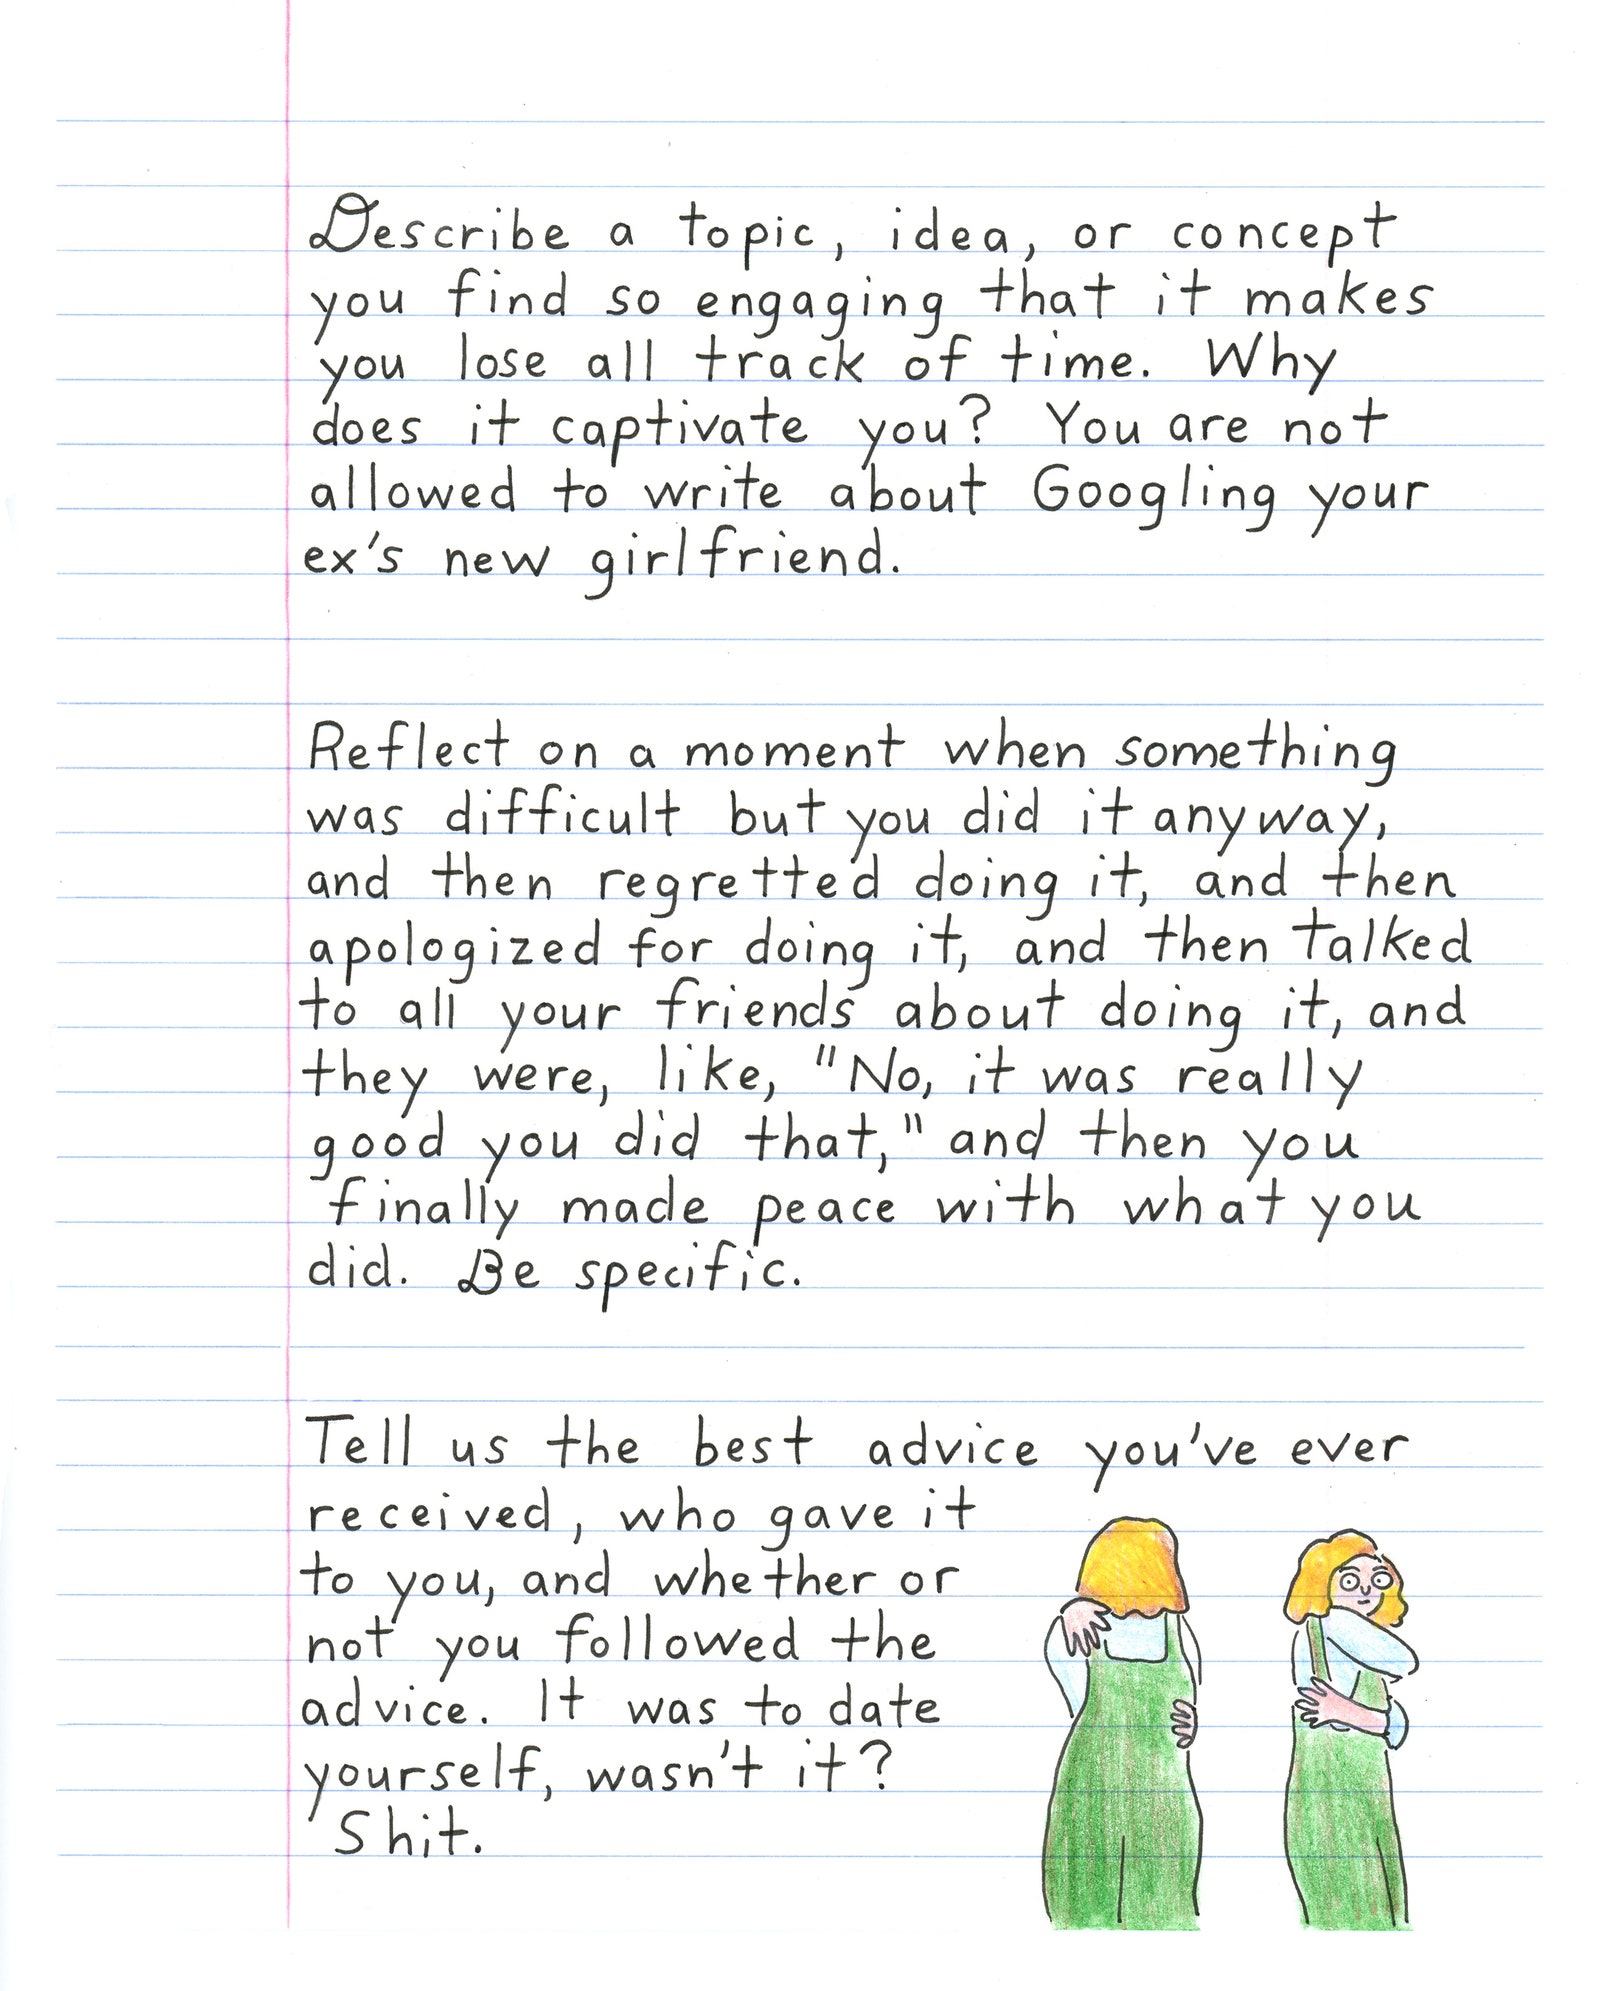 Describe a topic, idea, or concept
you find so engaging that it makes
you lose all track of time. Why
does it captivate you? You are not
allowed to write about Googling your
ex's new girlfriend.
Reflect on a moment when something
was difficult but you did it anyway,
and then regretted doing it, and then
apologized for doing it, and then talked
to all your friends about doing it, and
they were, like, "No, it was really
good you did that," and then you
finally made peace with what you
did. Be specific.
Tell us the best advice you've ever
received, who gave it
to you, and whether or
not you followed the
advice. It was to date
yourself, wasn't it?
Shit.